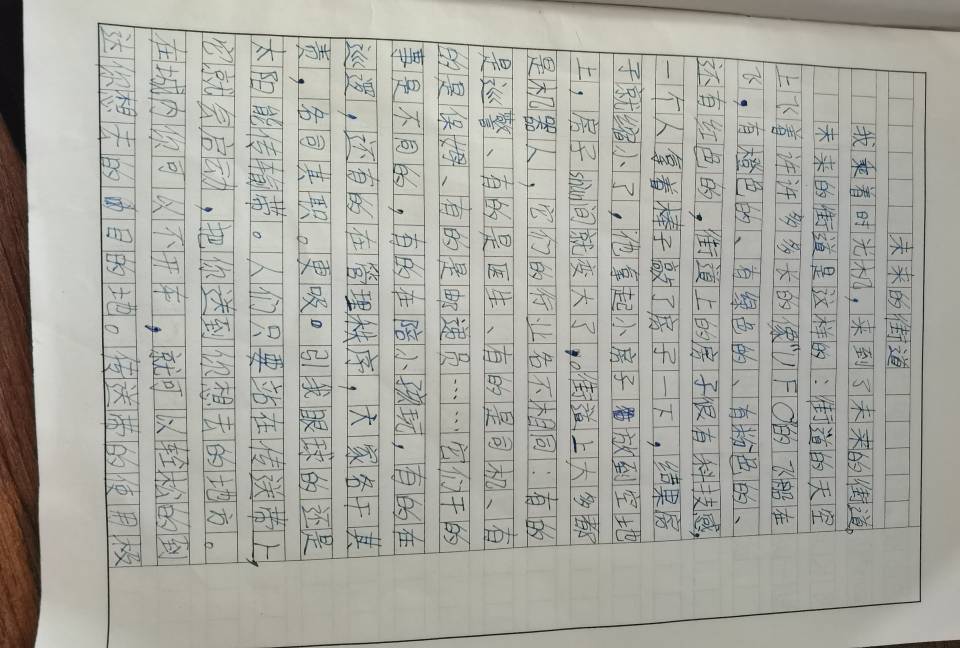 未来的街道
我乘着时光机，来到了未来的街道。
未来的街道是这样的：街道的天空
上下着许许多多水的像
下，有橙色的、有绿色的、有粉色的、
还有红色的，街道上的房子很有科技感，
一个人拿着棒子敲了房子一下，结果房
子就缩小了，他拿起小房子放到空地
上，房子shun间就变大了。街道上大多都
是机器人，它们的作业各不相同：有的
是巡警、有的是医生、有的是司机、有
的是保姆、有的是邮递员……它们干的
事是不同的，有的在陪小孩玩，有的在
巡逻，还有的在管理秩序，大家各干其
责，各司其职。更吸。引我眼球的还是
太阳能传输带。人们只要站在传送带上，
它就会启动，把你送到你想去的地方。
在城内你可以不开车，就可以轻松的到
达你想去的目的地。传送带的使用效